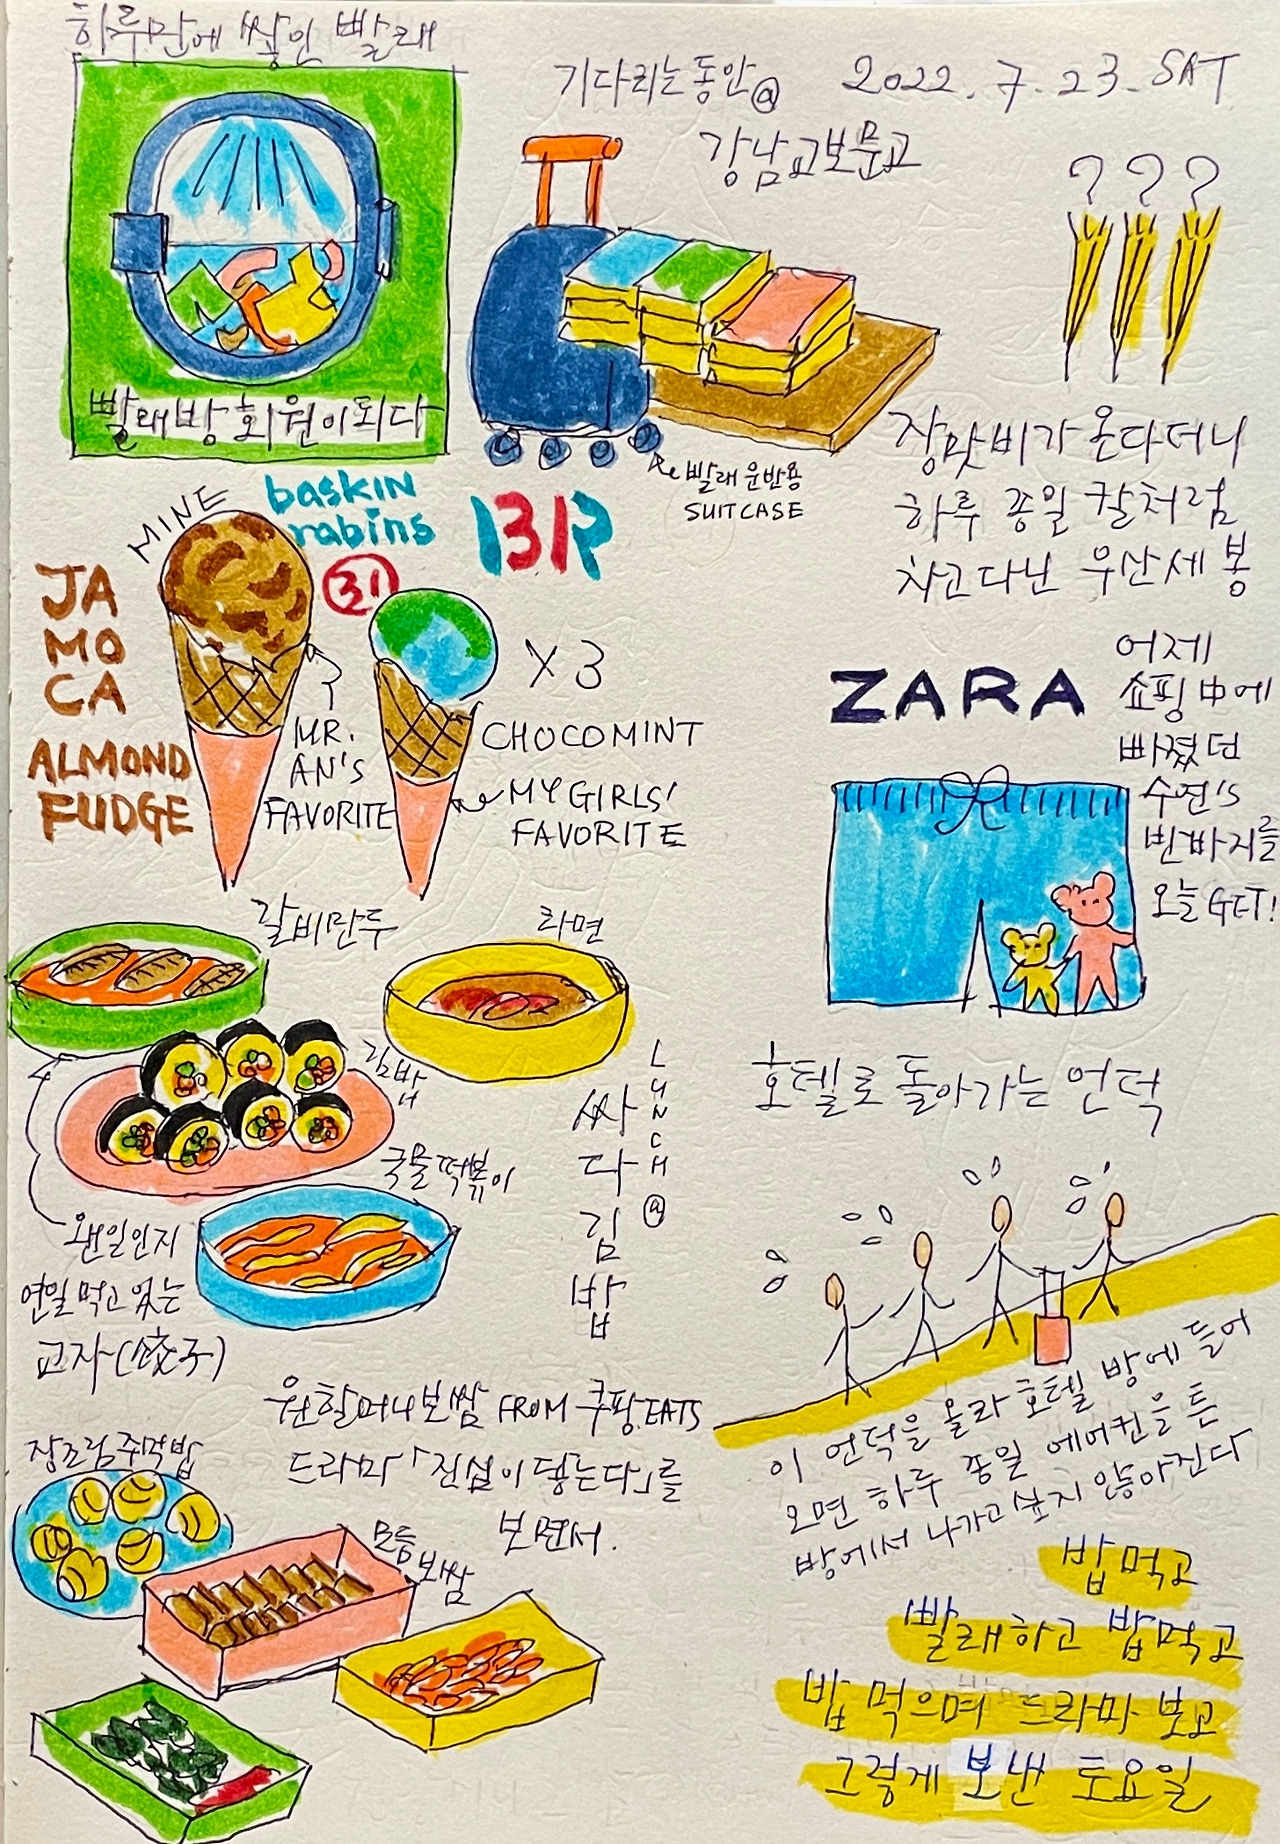 하루만에 쌓인 빨래
빨래방 회원이 되다
기다리는 동안 @
강남교보문고
2022.7.23. SAT
? ? ?
빨래 운반용
SUITCASE
장맛비가 온다더니
하루 종일 칼처럼
차고 다닌 우산 세 봉
MINE
baskin
rabins
31
1312
JA
MO
CA
ALMOND
FUDGE
MR.
AN'S
FAVORITE
X 3
CHOCOMINT
MY GIRLS'
FAVORITE
ZARA
어제
쇼핑 中에
빠졌던
수연's
반바지를
오늘 GET!
갈비만두
라면
김밥
국물떡볶이
LUNCH @
싸다김밥
왠일인지
연일 먹고 있는
교자(餃子)
호텔로 돌아가는 언덕
이 언덕을 올라 호텔 방에 들어
오면 하루 종일 에어컨을 튼
방에서 나가고 싶지 않아진다
원할머니보쌈 FROM 쿠팡EATS
드라마「진실이 닿는다」를
보면서.
장조림주먹밥
모듬
보쌈
밥 먹고
빨래하고 밥 먹고
밥 먹으며 드라마 보고
그렇게 보낸 토요일